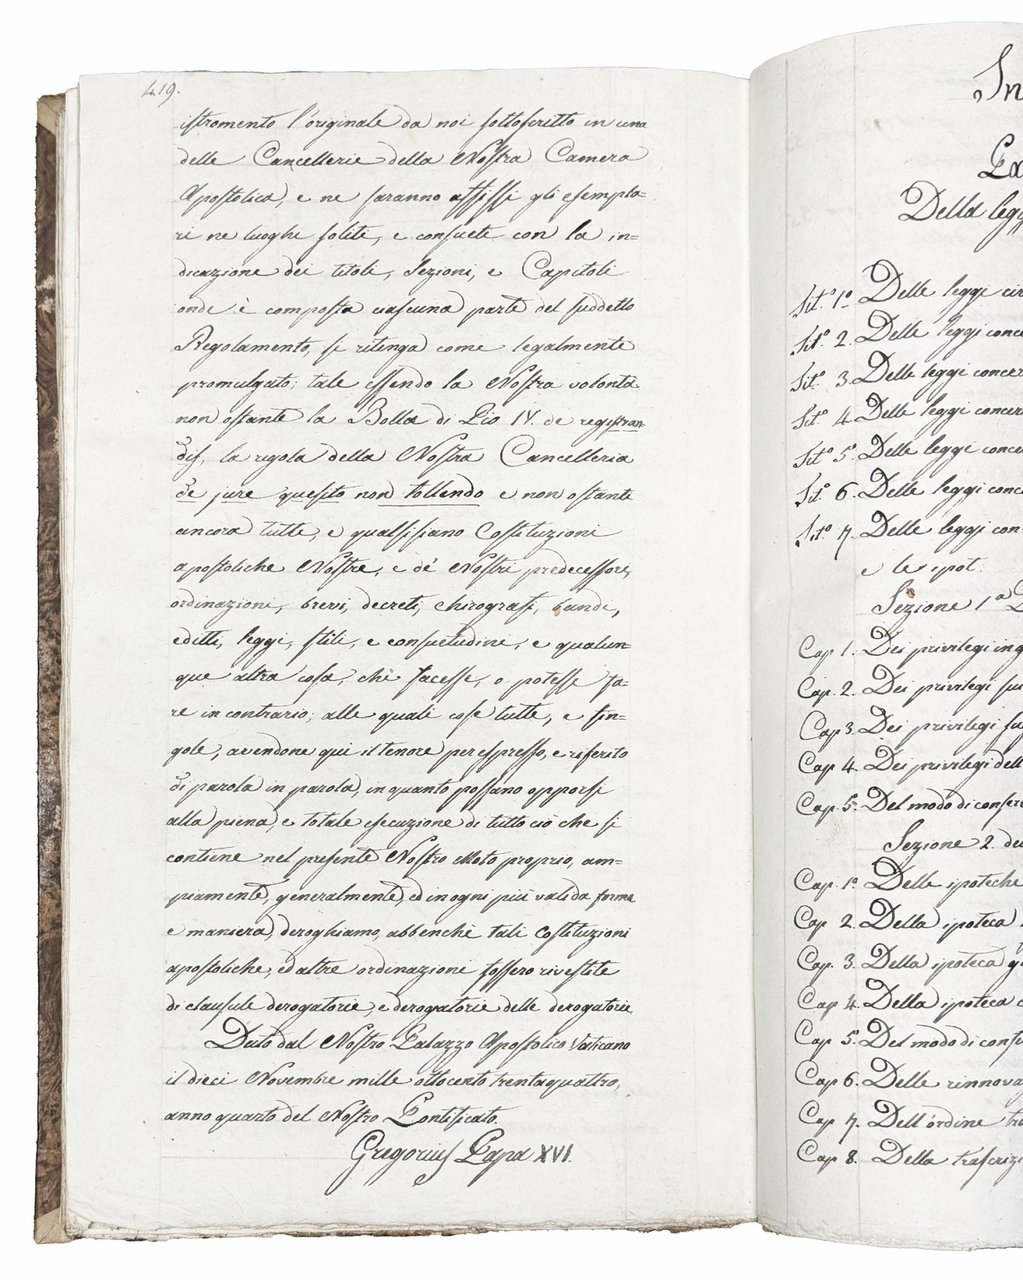 419.
istromento l'originale da noi sottoscritto in una
delle Cancellerie della Nostra Camera
Apostolica, e ne saranno affissi gli esempla=
ri ne luoghi soliti, e consueti con la in=
dicazione dei titoli, Sezioni, e Capitoli
onde è composta ciascuna parte del suddetto
Regolamento, si ritenga come legalmente
promulgato; tale essendo la Nostra volontà
non ostante la Bolla di Pio IV. de registran
dis, la regola della Nostra Cancelleria
de jure quesito non tollendo e non ostante
ancora tutte, e qualsisiano Costituzioni
apostoliche Nostre, e de' Nostri predecessori,
ordinazioni, brevi, decreti, chirografi, bandi,
editti, leggi, stili, e consuetudine, e qualun=
que altra cosa, che facesse, o potesse fa=
re in contrario; alle quali cose tutte, e sin=
gole, avendone qui il tenore per espresso, e riferito
di parola in parola, in quanto possano opporsi
alla piena, e totale esecuzione di tutto ciò che si
contiene nel presente Nostro Moto proprio, am=
piamente, generalmente, ed in ogni più valida forma
e maniera, deroghiamo, abbenchè tali costituzioni
apostoliche, ed altre ordinazione fossero rivestite
di clausule derogatorie, e derogatorie delle derogatorie
Dato dal Nostro Palazzo Apostolico Vaticano
il dieci Novembre mille ottocento trentaquattro,
anno quarto del Nostro Pontificato.
Gregorius Papa XVI.
In
Della leg
Tit.º 1º Delle leggi cir
Tit.º 2. Delle leggi conce
Tit.º 3. Delle leggi concer
Tit.º 4. Delle leggi concer
Tit.º 5. Delle leggi conce
Tit.º 6. Delle leggi conc
Tit.º 7. Delle leggi con
e le ipot.
Sezione 1ª D
Cap 1. Dei privilegi in g
Cap. 2. Dei privilegi su
Cap 3. Dei privilegi su
Cap 4. Dei privilegi dell
Cap. 5. Del modo di conser
Sezione 2. de
Cap. 1º Delle ipoteche
Cap 2. Della ipoteca
Cap. 3. Della ipoteca g
Cap 4. Della ipoteca c
Cap 5. Del modo di cons
Cap 6. Delle rinnova
Cap 7. Dell'ordine tr
Cap 8. Della trascrizi